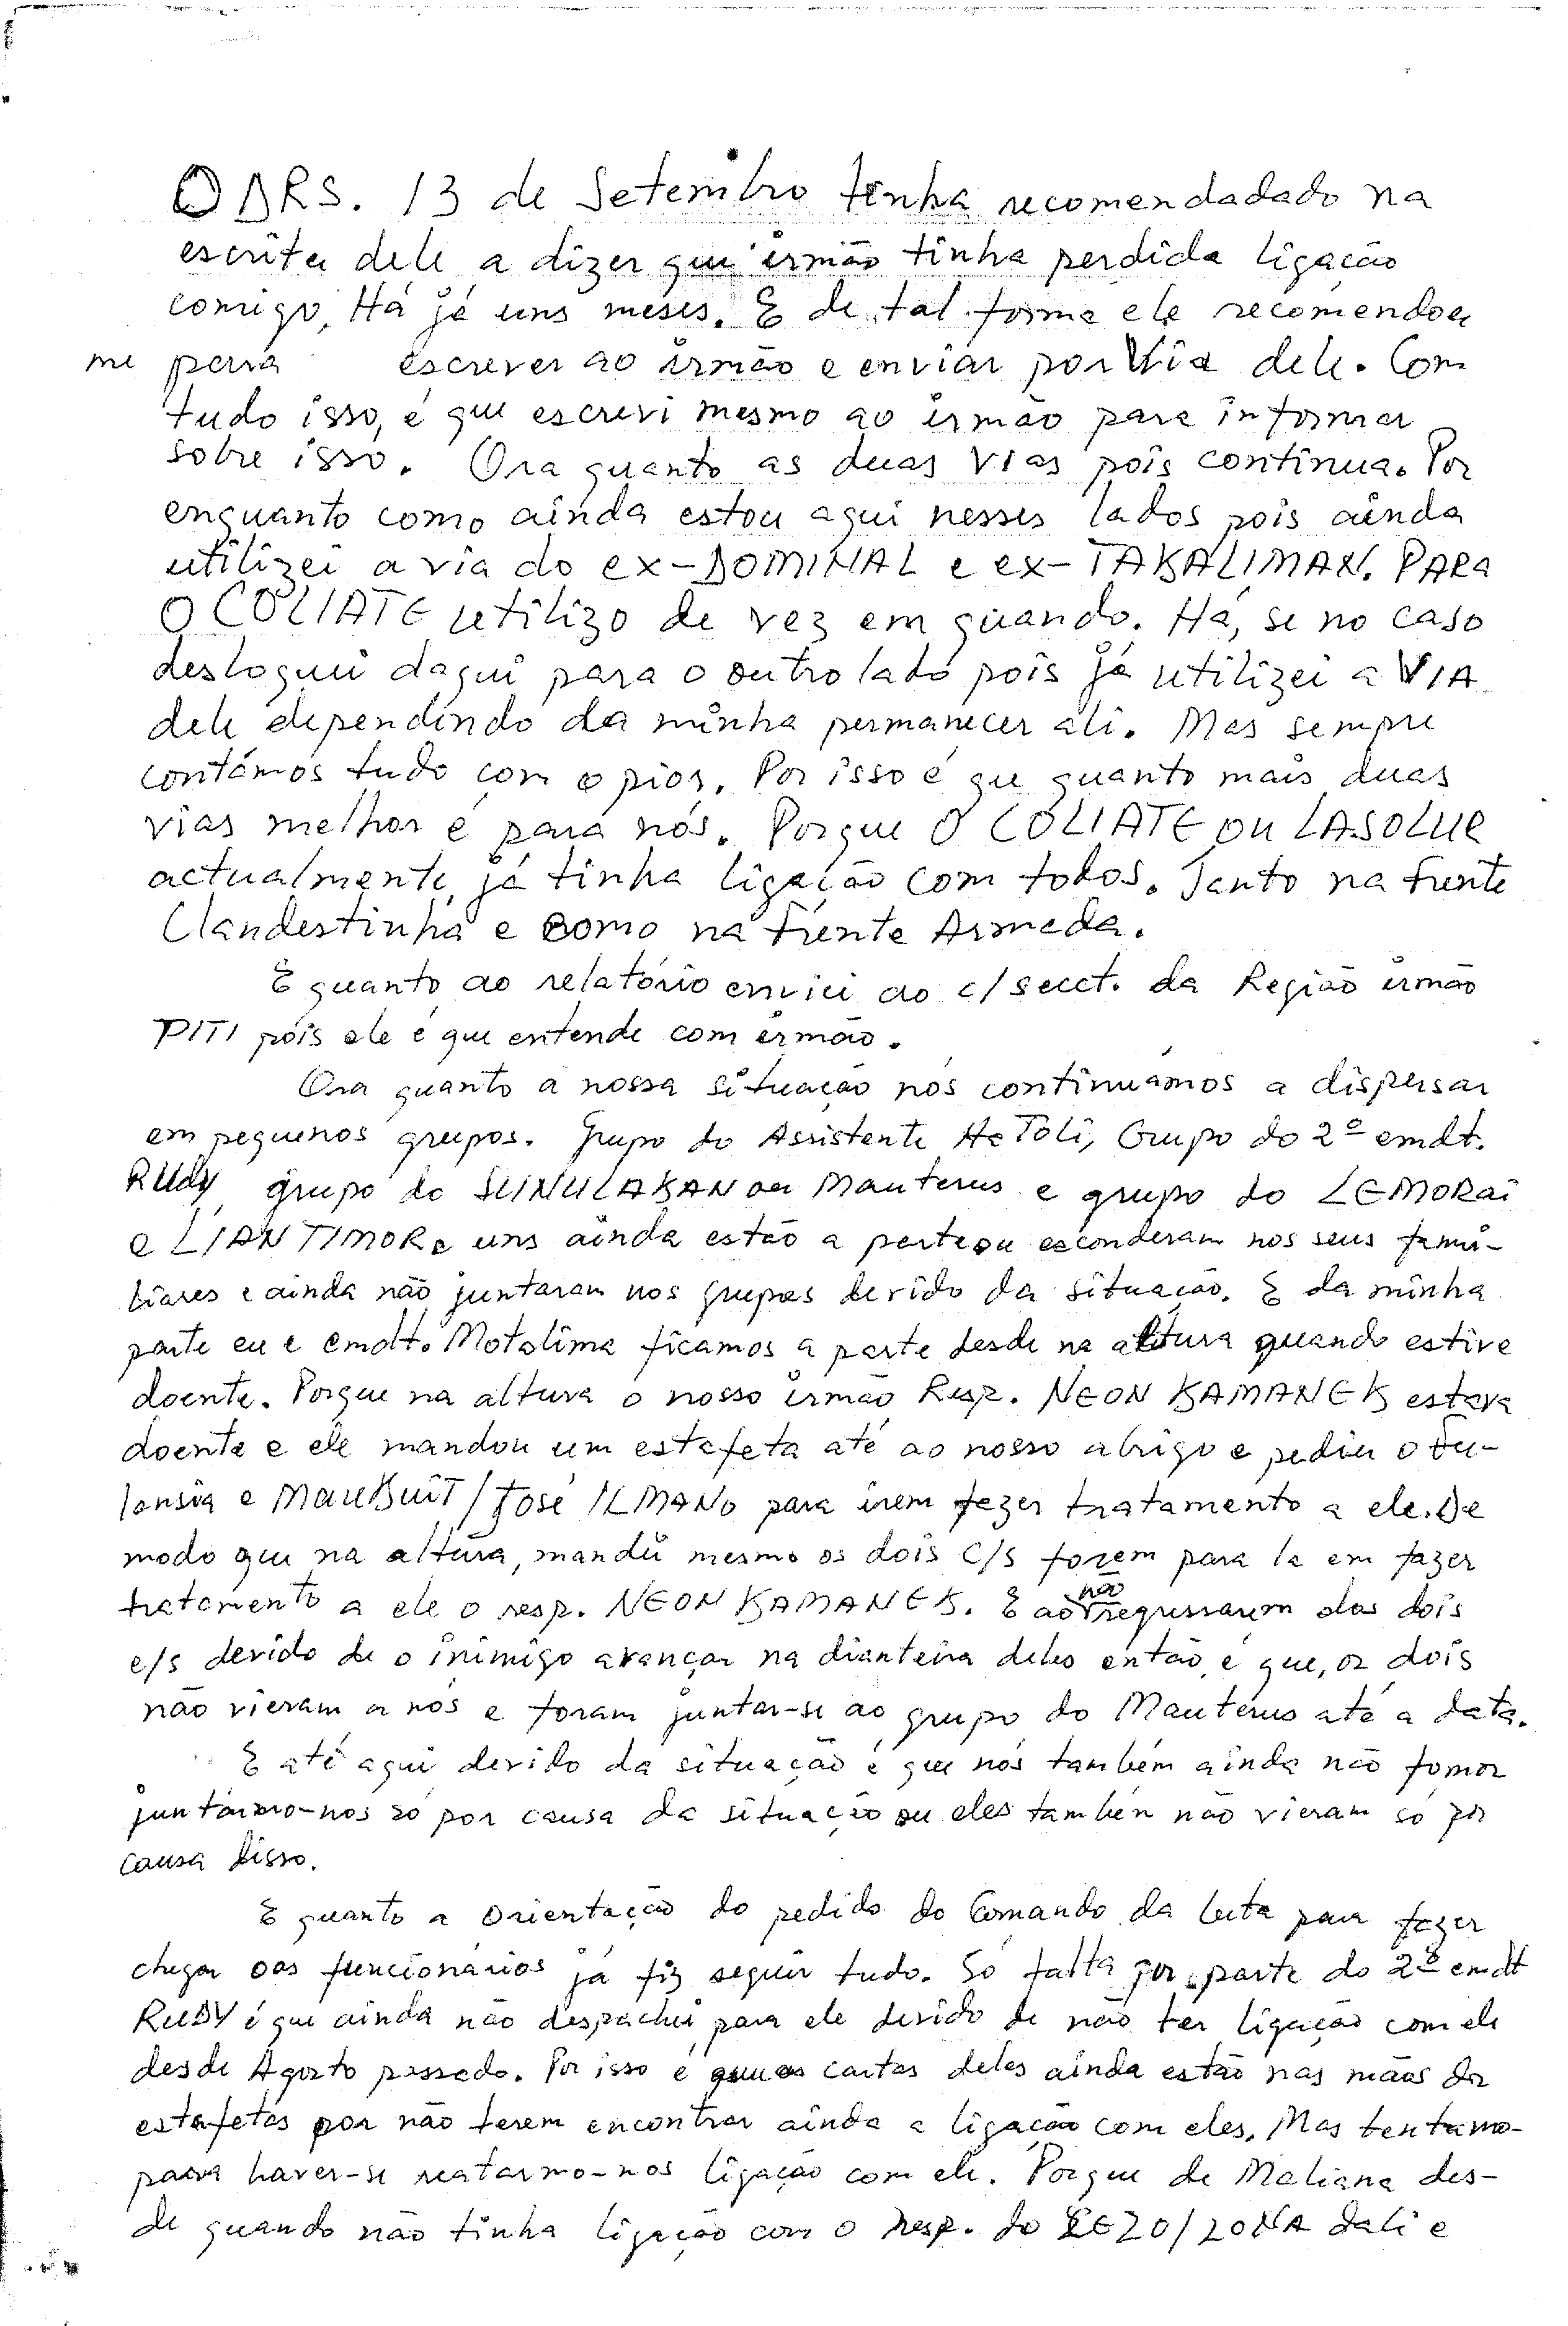 O DRS. 13 de Setembro tinha recomendadado na
escrita dele a dizer que irmão tinha perdida ligação
comigo, Há já uns meses. E de tal forma ele recomendou
me para escrever ao irmão e enviar por Via dele. Com
tudo isso, é que escrevi mesmo ao irmão para informar
sobre isso. Ora quanto as duas vias pois continua. Por
enquanto como ainda estou aqui nesses lados pois ainda
utilizei a via do ex-DOMINAL e ex-TAKALIMAN. PARA
O COLIATE utilizo de vez em quando. Há, se no caso
desloquei daqui para o outro lado pois já utilizei a VIA
dele dependindo da minha permanecer ali. Mas sempre
contámos tudo com o pior. Por isso é que quanto mais duas
vias melhor é para nós. Porque O COLIATE ou LASOLUR
actualmente, já tinha ligação com todos. Tanto na frente
Clandestinha e como na frente Armada.
E quanto ao relatório enviei ao c/secct. da Região irmão
PITI pois ele é que entende com irmão.
Ora quanto a nossa situação nós continuámos a dispersar
em pequenos grupos. Grupo do Assistente HeToli, Grupo do 2º cmdt.
RUdy, grupo do SUNULAKAN ou Mauterus e grupo do LEMORAI
e LIAN TIMOR e uns ainda estão a parte ou esconderam nos seus fami-
liares e ainda não juntaram nos grupos devido da situação. E da minha
parte eu e cmdt. Motolima ficamos a parte desde na altura quando estive
doente. Porque na altura o nosso irmão Resp. NEON KAMANEK estava
doente e ele mandou um estafeta até ao nosso abrigo e pediu o Fu-
lansia e MauBuiT/José ILMANO para irem fazer tratamento a ele. De
modo que na altura, mandei mesmo os dois c/s forem para la em fazer
tratamento a ele o resp. NEON KAMANEK. E ao não regressarem dos dois
c/s devido de o inimigo avançar na dianteira deles então é que, os dois
não vieram a nós e foram juntar-se ao grupo do Mauterus até a data.
E até aqui devido da situação é que nós também ainda não fomos
juntarmo-nos só por causa da situação ou eles também não vieram só por
causa disso.
E quanto a orientação do pedido do Comando da luta para fazer
chegar aos funcionários já fiz seguir tudo. Só falta por parte do 2º cmdt
RUDY é que ainda não despachei para ele devido de não ter ligação com ele
desde Agosto passado. Por isso é que as cartas deles ainda estão nas mãos dos
estafetas por não terem encontrar ainda a ligação com eles. Mas tentamo-
para haver-se reatarmo-nos ligação com ele. Porque de Maliana des-
de quando não tinha ligação com o resp. do LEZO/ZONA dali e